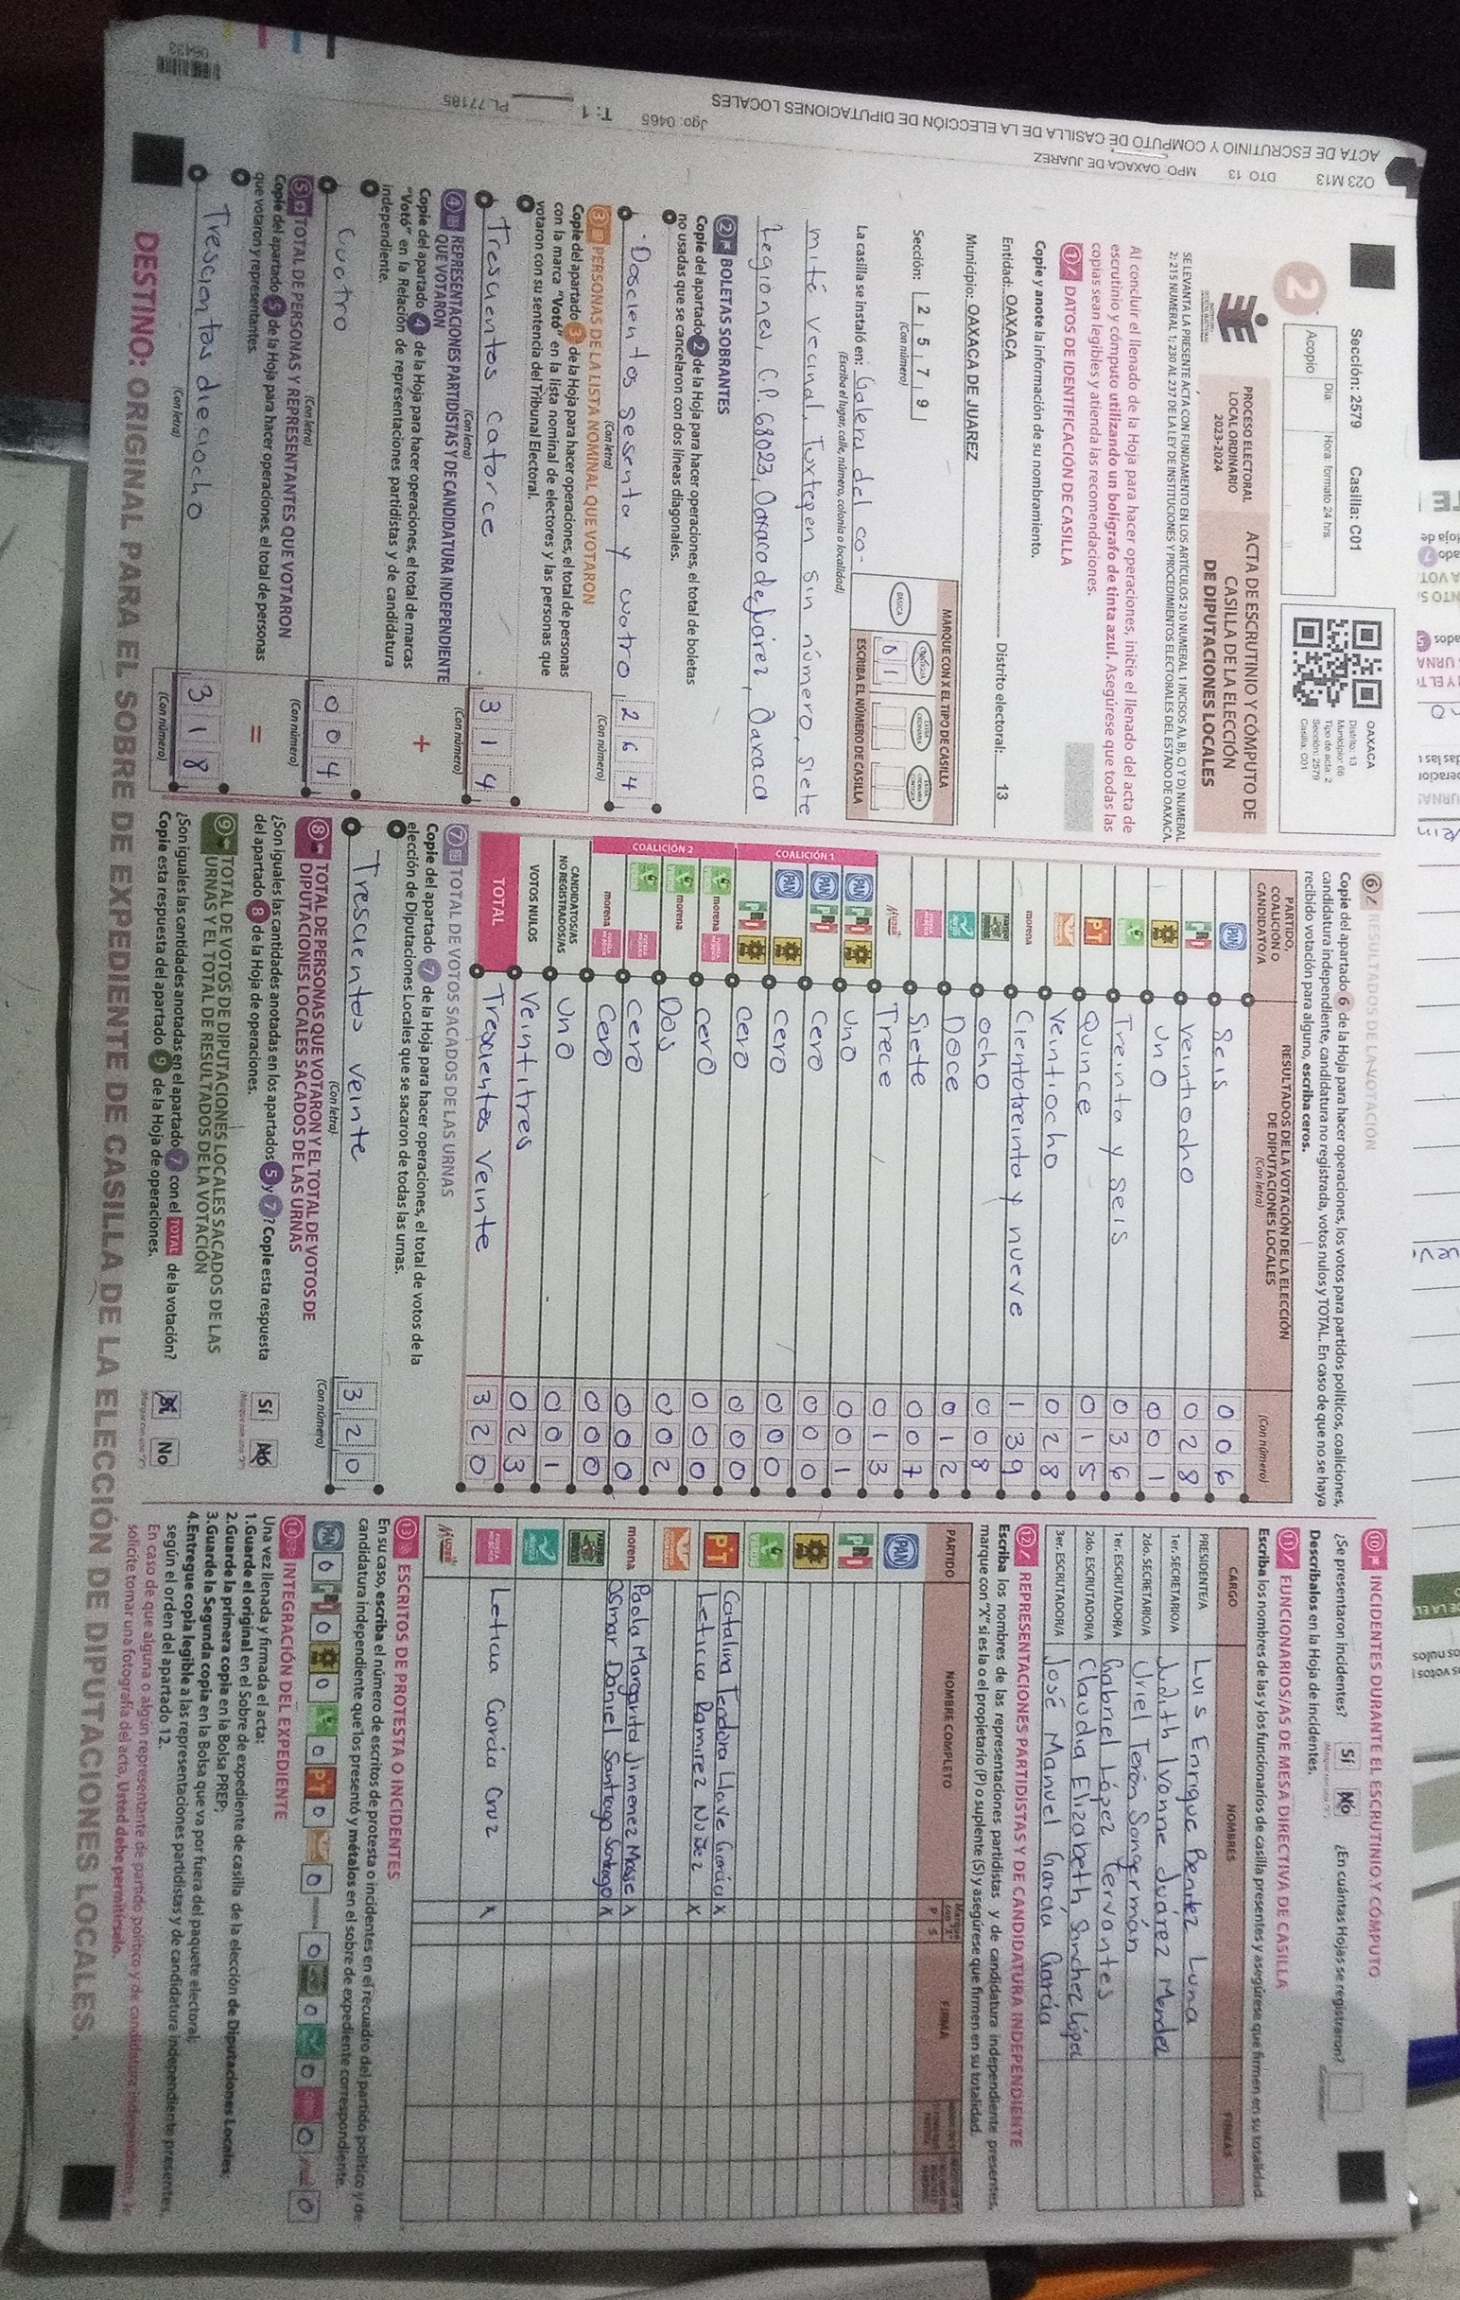 ACTA DE ESCRUTINIO Y CÓMPUTO DE CASILLA DE LA ELECCIÓN DE DIPUTACIONES LOCALES
O23 M13
DTO 13
MPO. OAXACA DE JUAREZ
Jgo: 0465
T: 1
PL.77185
Sección: 2579 Casilla: C01
Acopio
Día:
Hora: formato 24 hrs
2
OAXACA
Distrito: 13
Tipo de acta: 2
Sección: 2579
Casilla: C01
PROCESO ELECTORAL
LOCAL ORDINARIO
2023-2024
ACTA DE ESCRUTINIO Y CÓMPUTO DE
CASILLA DE LA ELECCIÓN
DE DIPUTACIONES LOCALES
SE LEVANTA LA PRESENTE ACTA CON FUNDAMENTO EN LOS ARTÍCULOS 210 NUMERAL 1 INCISOS A), B), C) Y D) NUMERAL
2; 215 NUMERAL 1; 230 AL 237 DE LA LEY DE INSTITUCIONES Y PROCEDIMIENTOS ELECTORALES DEL ESTADO DE OAXACA.
Al concluir el llenado de la Hoja para hacer operaciones, inicie el llenado del acta de
escrutinio y cómputo utilizando un bolígrafo de tinta azul. Asegúrese que todas las
copias sean legibles y atienda las recomendaciones.
1 DATOS DE IDENTIFICACIÓN DE CASILLA
Copie y anote la información de su nombramiento.
Entidad: OAXACA Distrito electoral: 13
Municipio: OAXACA DE JUAREZ
Sección: 2 5 7 9
(Con número)
MARQUE CON X EL TIPO DE CASILLA
BÁSICA
0 1
ESCRIBA EL NÚMERO DE CASILLA
La casilla se instaló en: Galera del co-
(Escriba el lugar, calle, número, colonia o localidad)
mité vecinal, Tuxtepen sin número, siete
Legiones, C.P. 68023, Oaxaca de Juárez, Oaxaca
2 BOLETAS SOBRANTES
Copie del apartado 2 de la Hoja para hacer operaciones, el total de boletas
no usadas que se cancelaron con dos líneas diagonales.
Doscientos sesenta y cuatro 2 6 4
(Con letra) (Con número)
3 PERSONAS DE LA LISTA NOMINAL QUE VOTARON
Copie del apartado 3 de la Hoja para hacer operaciones, el total de personas
con la marca "Votó" en la lista nominal de electores y las personas que
votaron con su sentencia del Tribunal Electoral.
Trescientos catorce 3 1 4
(Con letra) (Con número)
4 REPRESENTACIONES PARTIDISTAS Y DE CANDIDATURA INDEPENDIENTE
QUE VOTARON
Copie del apartado 4 de la Hoja para hacer operaciones, el total de marcas
"Votó" en la Relación de representaciones partidistas y de candidatura
independiente.
+
Cuatro 0 0 4
(Con letra) (Con número)
5 TOTAL DE PERSONAS Y REPRESENTANTES QUE VOTARON
Copie del apartado 5 de la Hoja para hacer operaciones, el total de personas
que votaron y representantes.
=
Trescientos dieciocho 3 1 8
(Con letra) (Con número)
6 RESULTADOS DE LA VOTACIÓN
Copie del apartado 6 de la Hoja para hacer operaciones, los votos para partidos políticos, coaliciones,
candidatura independiente, candidatura no registrada, votos nulos y TOTAL. En caso de que no se haya
recibido votación para alguno, escriba ceros.
PARTIDO,
COALICIÓN O
CANDIDATO/A
RESULTADOS DE LA VOTACIÓN DE LA ELECCIÓN
DE DIPUTACIONES LOCALES
(Con letra)
(Con número)
PAN Seis 0 0 6
PRI Veintiocho 0 2 8
Uno 0 0 1
Treinta y seis 0 3 6
PT Quince 0 1 5
Veintiocho 0 2 8
morena Ciento treinta y nueve 1 3 9
ocho 0 0 8
Doce 0 1 2
Siete 0 0 7
Trece 0 1 3
COALICIÓN 1
PAN PRI Uno 0 0 1
PAN PRI Cero 0 0 0
PAN Cero 0 0 0
PRI Cero 0 0 0
COALICIÓN 2
morena Cero 0 0 0
morena Dos 0 0 2
Cero 0 0 0
morena Cero 0 0 0
CANDIDATOS/AS
NO REGISTRADOS/AS Uno 0 0 1
VOTOS NULOS Veintitres 0 2 3
TOTAL Trescientos veinte 3 2 0
7 TOTAL DE VOTOS SACADOS DE LAS URNAS
Copie del apartado 7 de la Hoja para hacer operaciones, el total de votos de la
elección de Diputaciones Locales que se sacaron de todas las urnas.
Trescientos veinte 3 2 0
(Con letra) (Con número)
8 TOTAL DE PERSONAS QUE VOTARON Y EL TOTAL DE VOTOS DE
DIPUTACIONES LOCALES SACADOS DE LAS URNAS
¿Son iguales las cantidades anotadas en los apartados 5 y 7? Copie esta respuesta
del apartado 8 de la Hoja de operaciones.
Sí No
9 TOTAL DE VOTOS DE DIPUTACIONES LOCALES SACADOS DE LAS
URNAS Y EL TOTAL DE RESULTADOS DE LA VOTACIÓN
¿Son iguales las cantidades anotadas en el apartado 7 con el TOTAL de la votación?
Copie esta respuesta del apartado 9 de la Hoja de operaciones.
Sí No
10 INCIDENTES DURANTE EL ESCRUTINIO Y CÓMPUTO
¿Se presentaron incidentes? Sí No ¿En cuántas Hojas se registraron?
Descríbalos en la Hoja de Incidentes.
11 FUNCIONARIOS/AS DE MESA DIRECTIVA DE CASILLA
Escriba los nombres de las y los funcionarios de casilla presentes y asegúrese que firmen en su totalidad.
CARGO NOMBRES FIRMAS
PRESIDENTE/A Luis Enrique Benitez Luna
1er. SECRETARIO/A Judith Ivonne Juárez Mendez
2do. SECRETARIO/A Uriel Terán Sangermán
1er. ESCRUTADOR/A Gabriel López Cervantes
2do. ESCRUTADOR/A Claudia Elizabeth Sánchez López
3er. ESCRUTADOR/A José Manuel García García
12 REPRESENTACIONES PARTIDISTAS Y DE CANDIDATURA INDEPENDIENTE
Escriba los nombres de las representaciones partidistas y de candidatura independiente presentes,
marque con "X" si es la o el propietario (P) o suplente (S) y asegúrese que firmen en su totalidad.
PARTIDO NOMBRE COMPLETO P S FIRMA
PAN
PRI
PT Catalina Teodora Llave García X
Leticia Ramirez Nuñez X
morena Paola Margarita Jimenez Masse X
Osmar Daniel Santiago Santiago X
Leticia García Cruz X
13 ESCRITOS DE PROTESTA O INCIDENTES
En su caso, escriba el número de escritos de protesta o incidentes en el recuadro del partido político y de
candidatura independiente que los presentó y métalos en el sobre de expediente correspondiente.
PAN 0 PRI 0 0 0 PT 0 0 morena 0 0 0 0 0
14 INTEGRACIÓN DEL EXPEDIENTE
Una vez llenada y firmada el acta:
1.Guarde el original en el Sobre de expediente de casilla de la elección de Diputaciones Locales;
2.Guarde la primera copia en la Bolsa PREP;
3.Guarde la Segunda copia en la Bolsa que va por fuera del paquete electoral;
4.Entregue copia legible a las representaciones partidistas y de candidatura independiente presentes,
según el orden del apartado 12.
En caso de que alguna o algún representante de partido político y de candidatura independiente, le
solicite tomar una fotografía del acta, Usted debe permitírselo.
DESTINO: ORIGINAL PARA EL SOBRE DE EXPEDIENTE DE CASILLA DE LA ELECCIÓN DE DIPUTACIONES LOCALES.